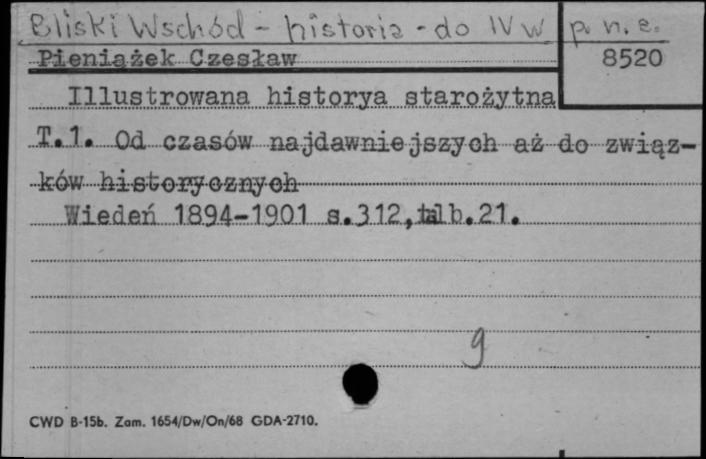 Bliski Wschód - historia - do IV w p. n. e.
Pieniążek Czesław
8520
Illustrowana historya starożytna
T.1. Od czasów najdawniejszych aż do związ-
ków historycznych
Wiedeń 1894-1901 s.312, tab.21.
g
CWD B-15b. Zam. 1654/Dw/On/68 GDA-2710.